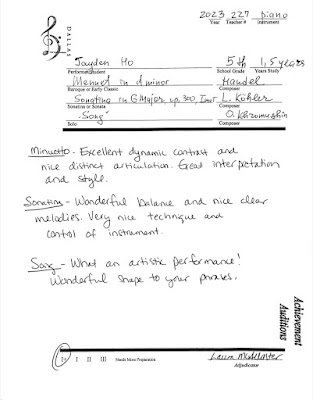 2023 227 Piano
Year Teacher # Instrument
DALLAS
Jayden Ho 5th 1,5 years
Performer/Student School Grade Years Study
Menuet in d minor Handel
Baroque or Early Classic Composer
Sonatina in G Major op. 300, I L. Köhler
Sonatina or Sonata Composer
"Song" O. Khromushin
Solo Composer
Minuetto - Excellent dynamic contrast and
nice distinct articulation. Great interpretation
and style.
Sonatina - Wonderful balance and nice clear
melodies. Very nice technique and
control of instrument.
Song - What an artistic performance!
Wonderful shape to your phrases.
Achievement
Auditions
I+ I II III Needs More Preparation
Laura
Adjudicator